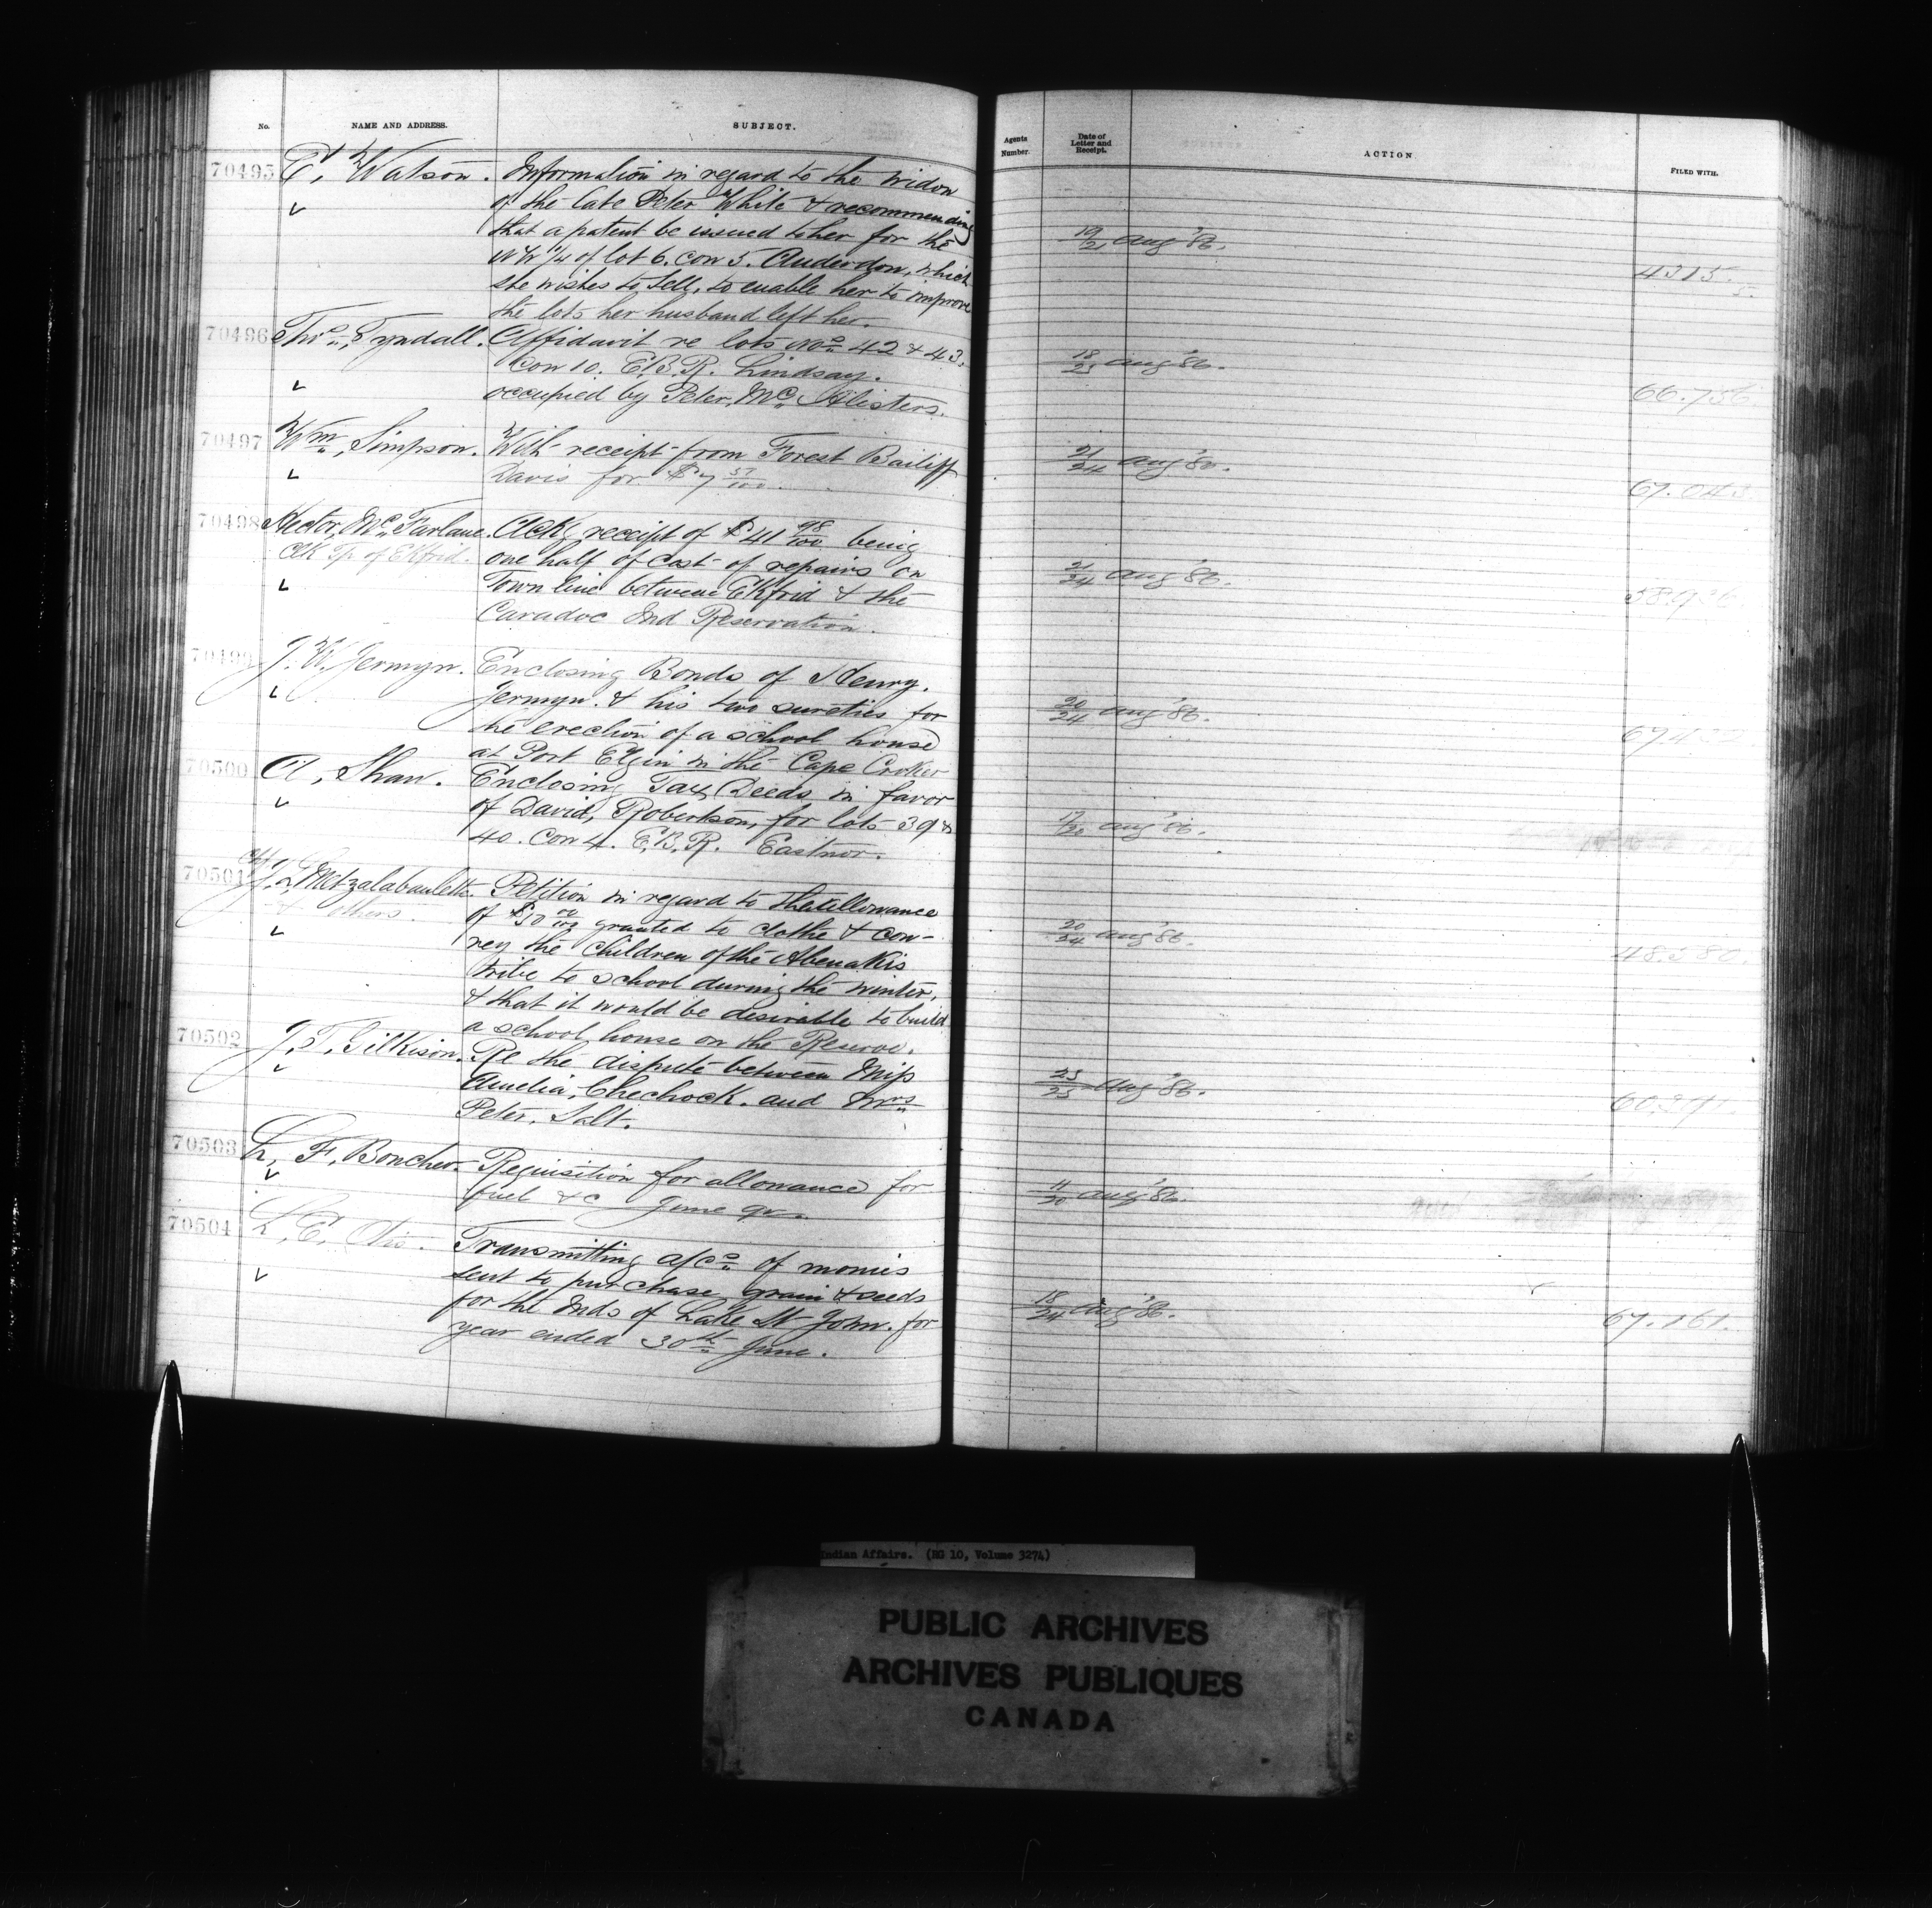 No. NAME AND ADDRESS. SUBJECT. Agents Number. Date of Letter and Receipt. ACTION FILED WITH.
70495 E, Watson. Information in regard to the widow
of the late Peter White & recommending
that a patent be issued to her for the 19/21 Aug '86.
N W 1/4 of lot 6. con 5. Anderdon, which 4315.
she wishes to sell, to enable her to improve 5.
the lots her husband left her.
70496 Thos, Tyndall. Affidavit re lots Nos 42 & 43.
Con 10. E.B.R. Lindsay. Aug '86.
occupied by Peter, Mc, Alisters. 66.736
70497 Wm, Simpson. With receipt from Forest Bailiff 21/24 Aug '86.
Davis for $7 57/100. 67.043.
70498 Hector, Mc, Farlane. Ackg receipt of $41 98/100 being
Clk Tp of Ekfrid. one half of cost of repairs on 21/24 Aug '86.
Town line between Ekfrid & the
Caradoc Ind Reservation.
70499 J. W. Jermyn. Enclosing Bonds of Henry.
Jermyn. & his two sureties for 20/24 Aug '86.
the erection of a school house
at Port Elgin in the Cape Croker
70500 A, Shaw. Enclosing Tax Deeds in favor
of David, Robertson, for lots 39 & Aug '86.
40. Con 4. E.B.R. Eastnor.
70501 J. L. Metzalabaulette Petition in regard to the allowance
& others. of $10 00/100 granted to clothe & con-
vey the children of the Abenakis 20/24 Aug '86.
tribe to school during the winter, 48.580.
& that it would be desirable to build
a school house on the Reserve.
70502 J, T, Gilkison. Re the dispute between Miss
Amelia, Chechock. and Mrs Aug '86.
Peter, Salt.
70503 L, F, Boucher Requisition for allowance for
fuel &c June qr. 11/20 Aug '86.
70504 L, E, Otis. Transmitting a/cs of monies
sent to purchase grain & seeds
for the Inds of Lake St John. for 18/24 Aug '86.
year ended 30th June. 67.161.
Indian Affairs. (RG 10, Volume 3274)
PUBLIC ARCHIVES
ARCHIVES PUBLIQUES
CANADA